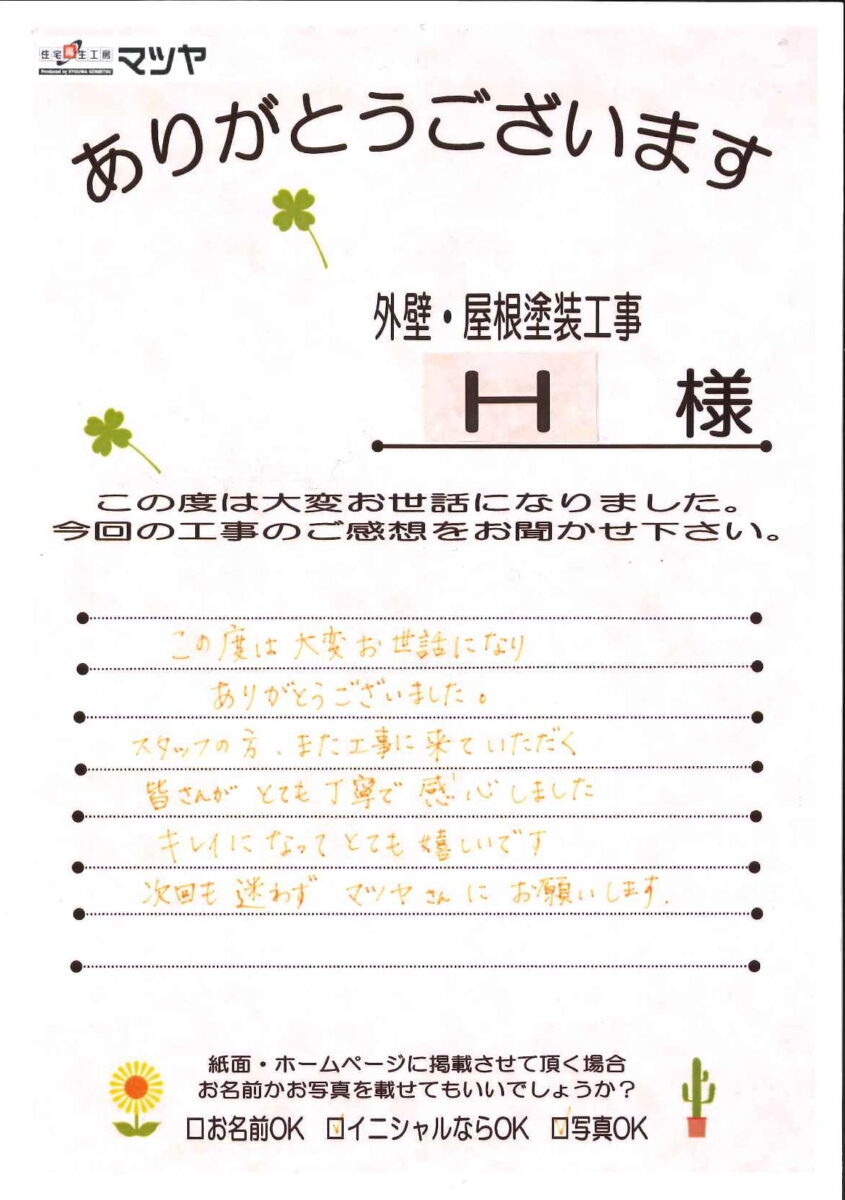 住宅再生工房 マツヤ
Produced by KYOUWA KENSETSU
ありがとうございます
外壁・屋根塗装工事
H 様
この度は大変お世話になりました。
今回の工事のご感想をお聞かせ下さい。
この度は大変お世話になり
ありがとうございました。
スタッフの方、また工事に来ていただく
皆さんが とても丁寧で 感心しました
キレイになってとても嬉しいです
次回も迷わず マツヤさんに お願いします.
紙面・ホームページに掲載させて頂く場合
お名前かお写真を載せてもいいでしょうか？
□お名前OK ☑イニシャルならOK ☑写真OK